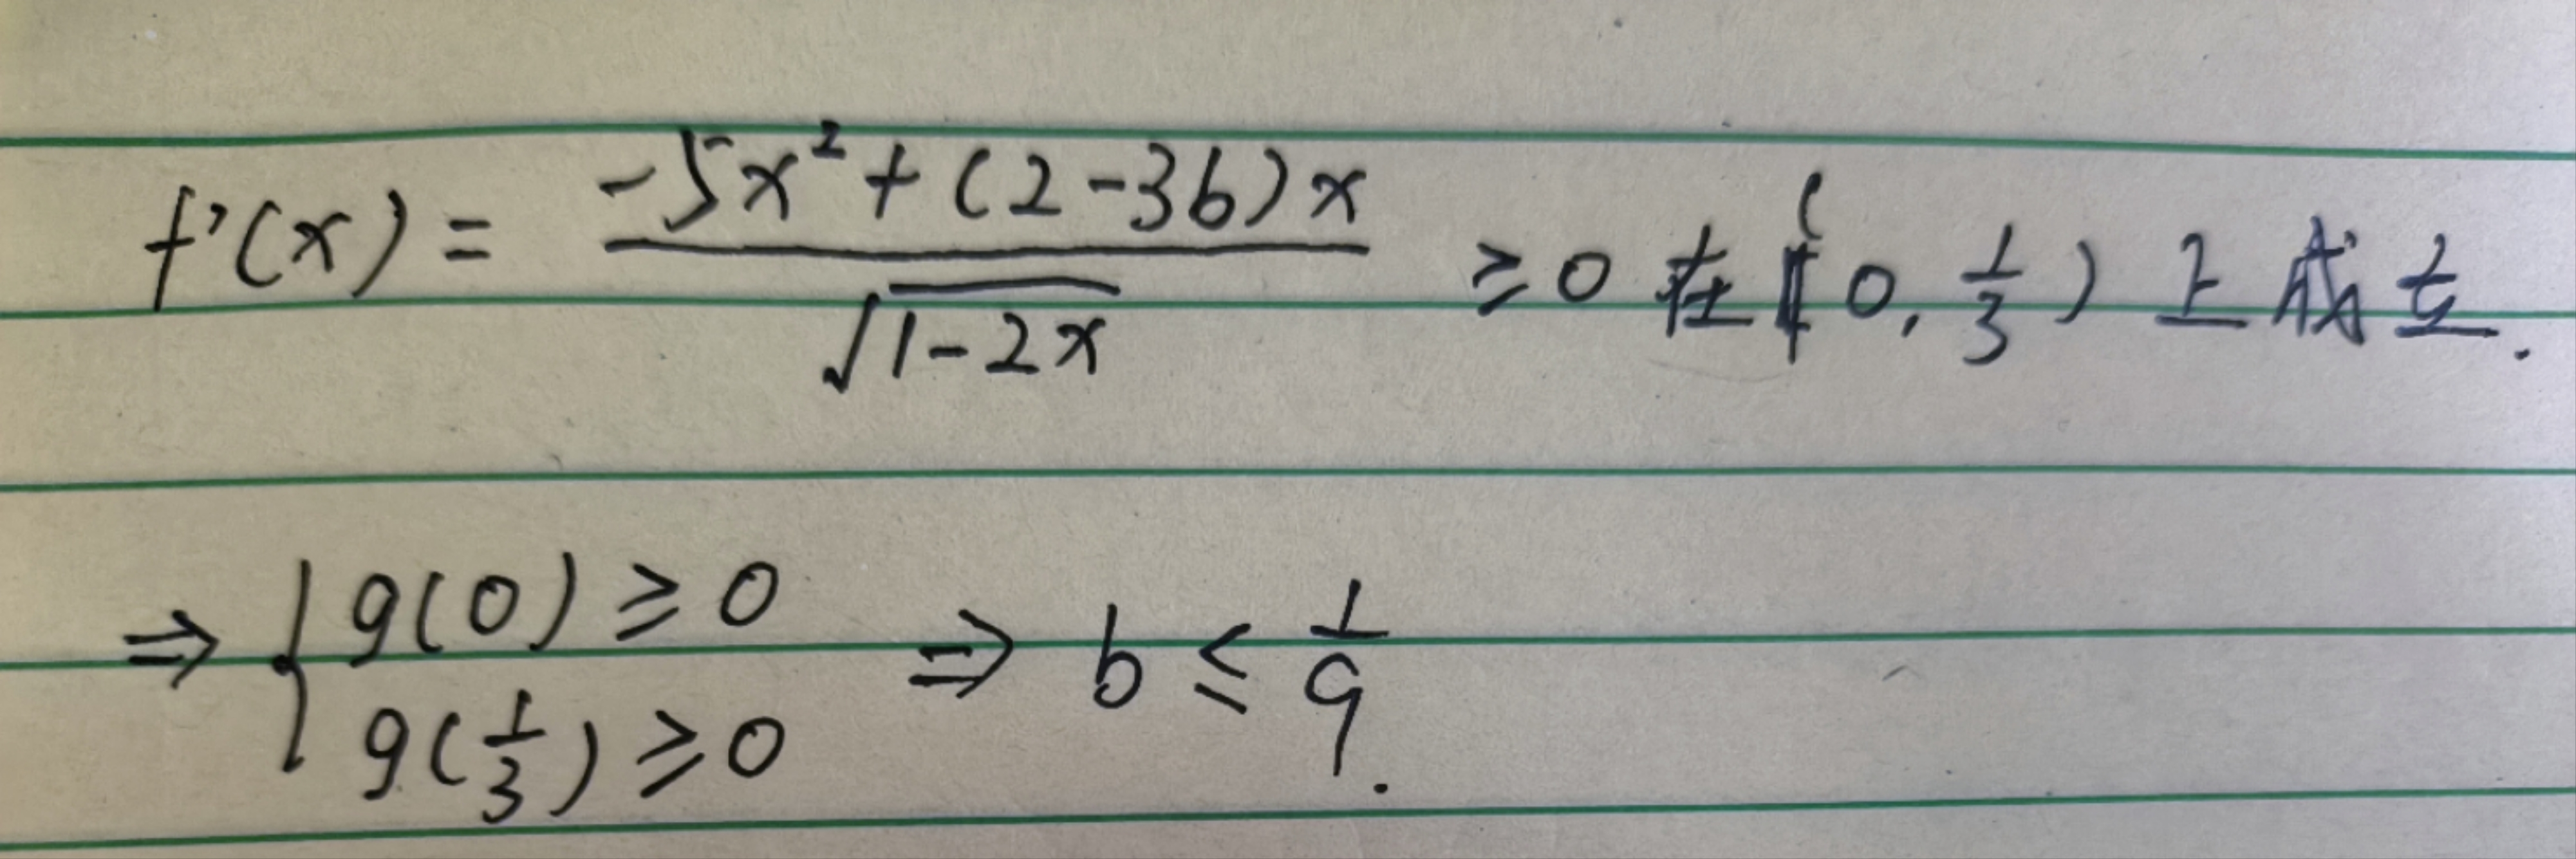 f'(x) = \frac{-5x² + (2-3b)x}{\sqrt{1-2x}} ≥ 0 在 (0, \frac{1}{3}) 上成立.
⇒ { g(0) ≥ 0
g(\frac{1}{3}) ≥ 0 ⇒ b ≤ \frac{1}{9}.